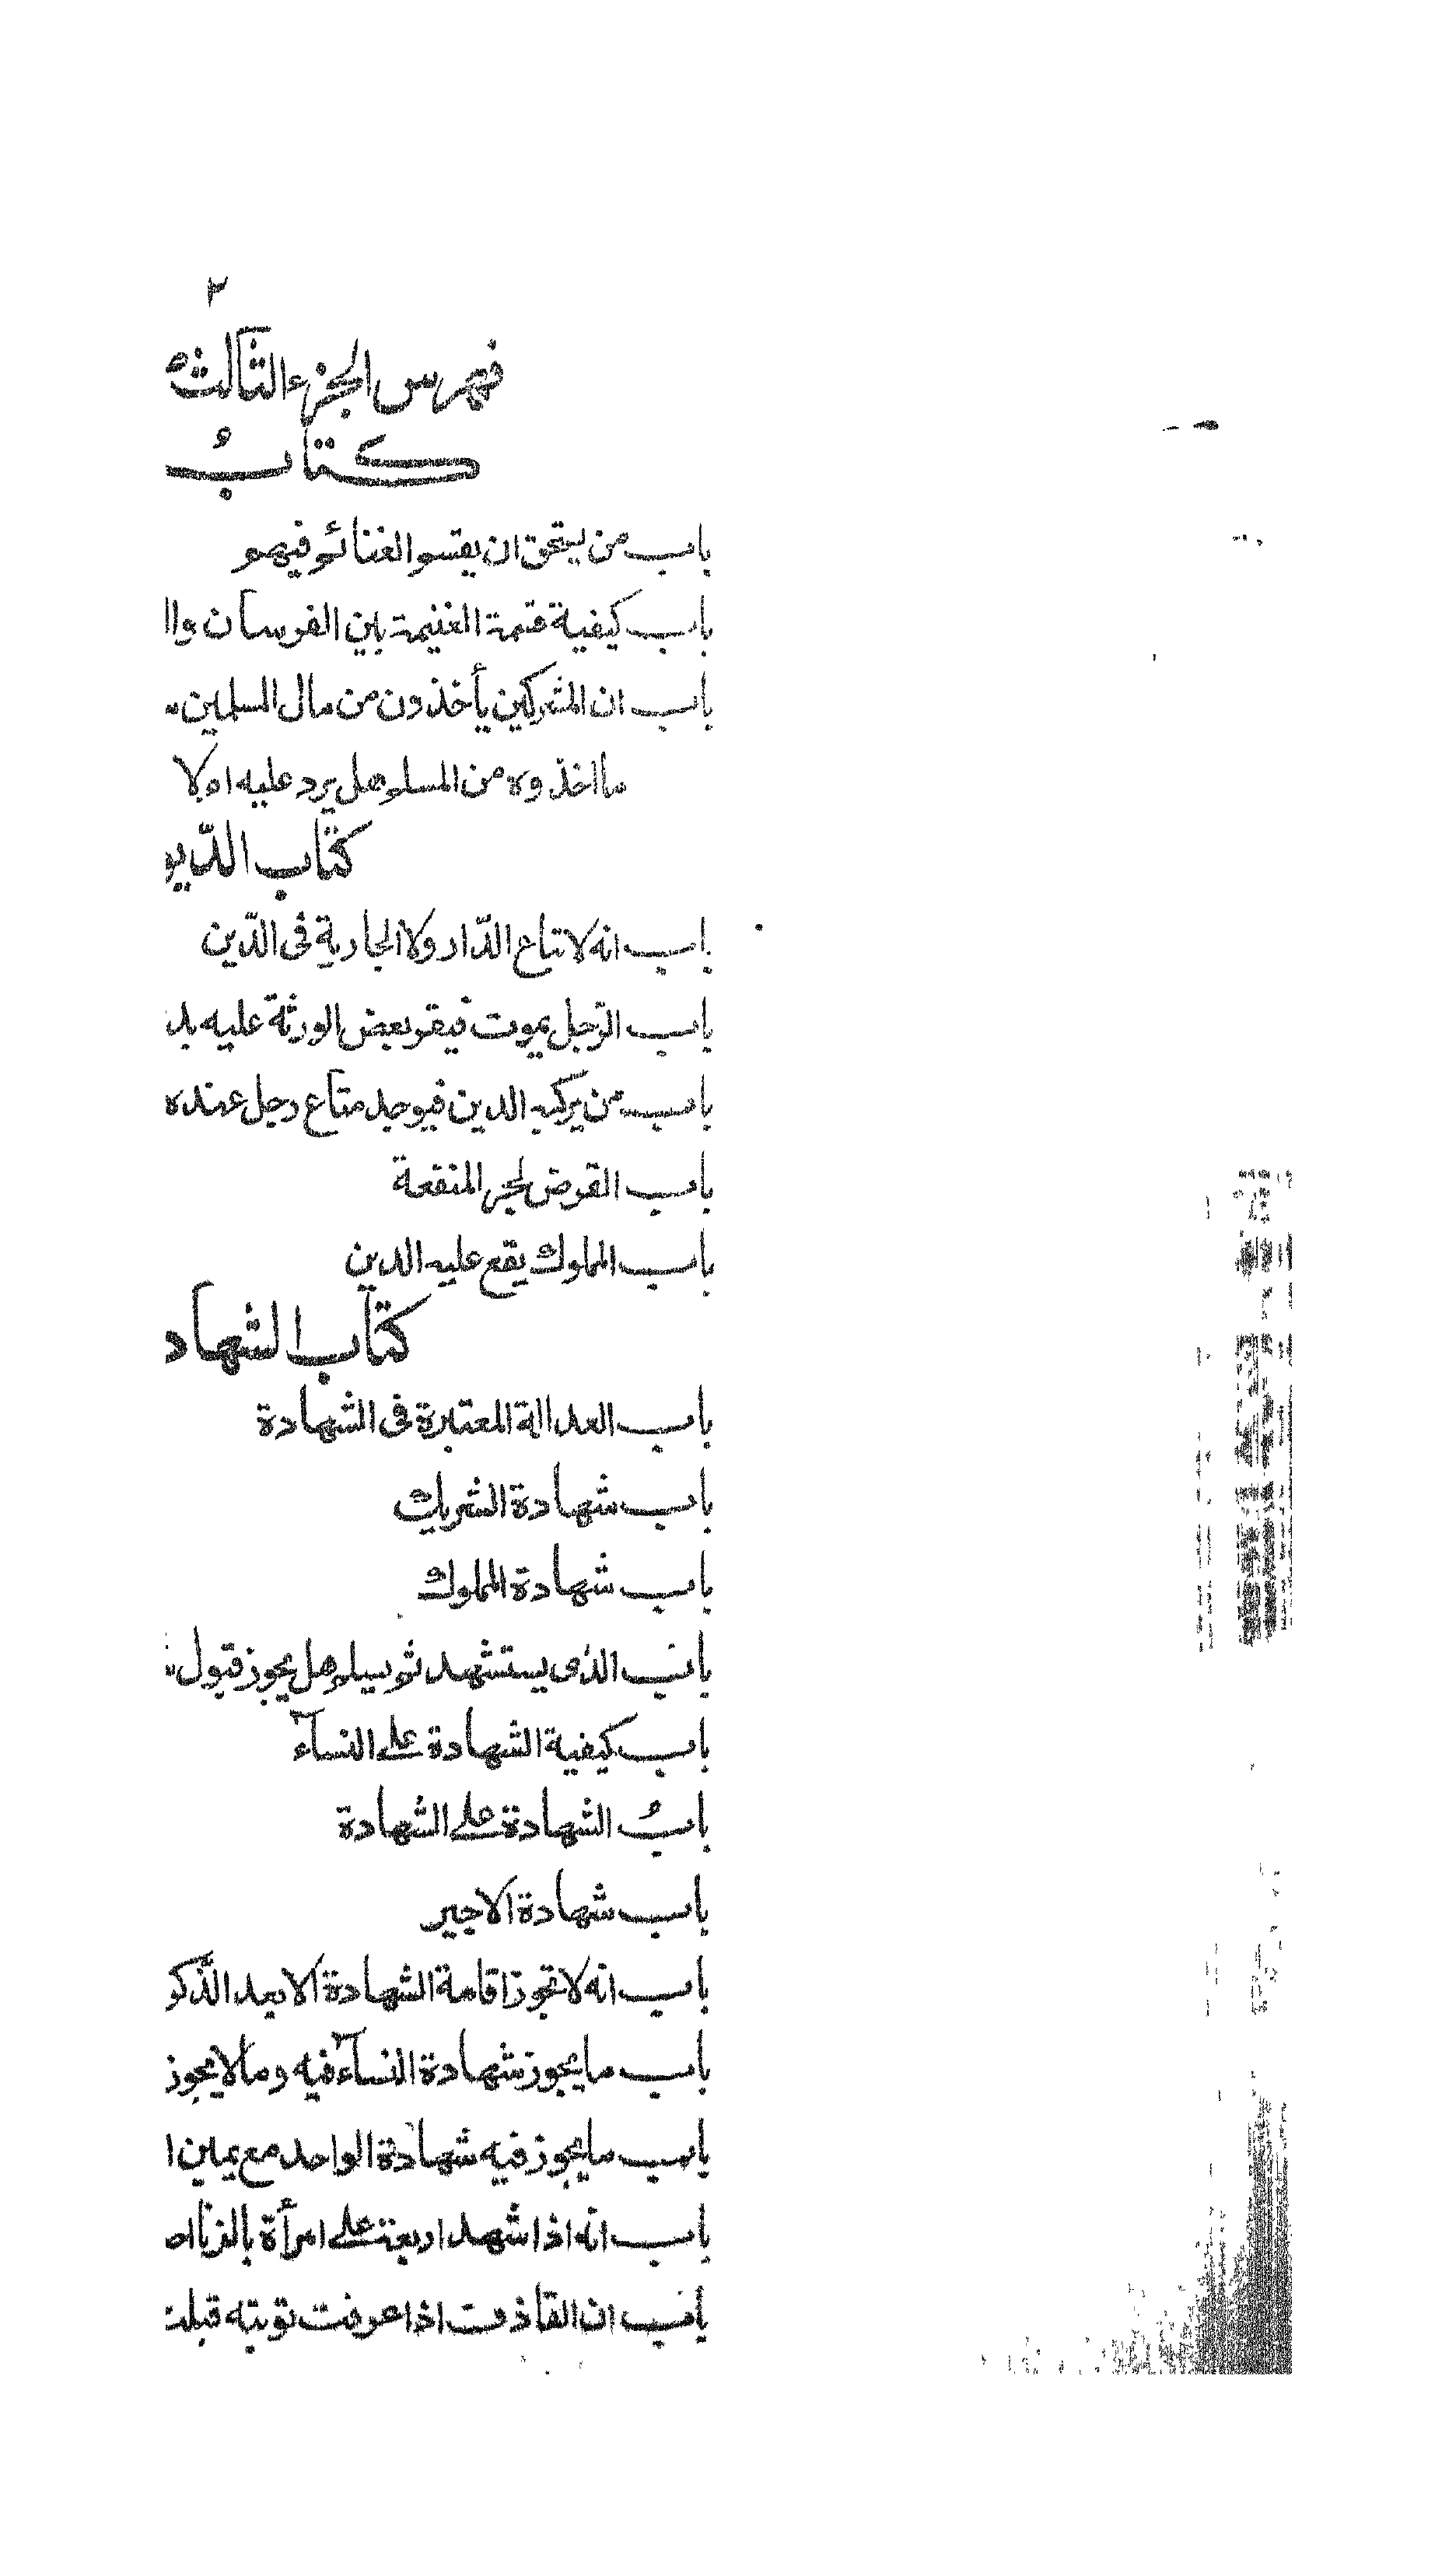 ٢
فهرس الجزء الثالث
كتاب
باب من يستحق ان يقسم الغنائم فيهم
باب كيفية قسمة الغنيمة بين الفرسان
باب ان المشركين يأخذون من مال المسلمين
ما اخذوه من المسلم هل يرد عليه ام لا
كتاب
باب انه لا تباع الدّار ولا الجارية فى الدّين
باب الرّجل يموت فيقر بعض الورثة عليه
باب من يركبه الدين فيوجد متاع رجل عنده
باب القرض لجر المنفعة
باب المملوك يقع عليه الدين
كتاب
باب العدالة المعتبرة فى الشهادة
باب شهادة الشريك
باب شهادة المملوك
باب الذى يستشهد ثم يسلم هل يجوز قبول
باب كيفية الشهادة على النسآء
بابُ الشهادة على الشهادة
باب شهادة الاجير
باب انه لا تجوز اقامة الشهادة الا بعد الذّكر
باب ما يجوز شهادة النسآء فيه وما لا يجوز
باب ما يجوز فيه شهادة الواحد مع يمين
باب انه اذا شهد اربعة على امرأة بالزنا
باب ان القاذف اذا عرفت توبته قبلت